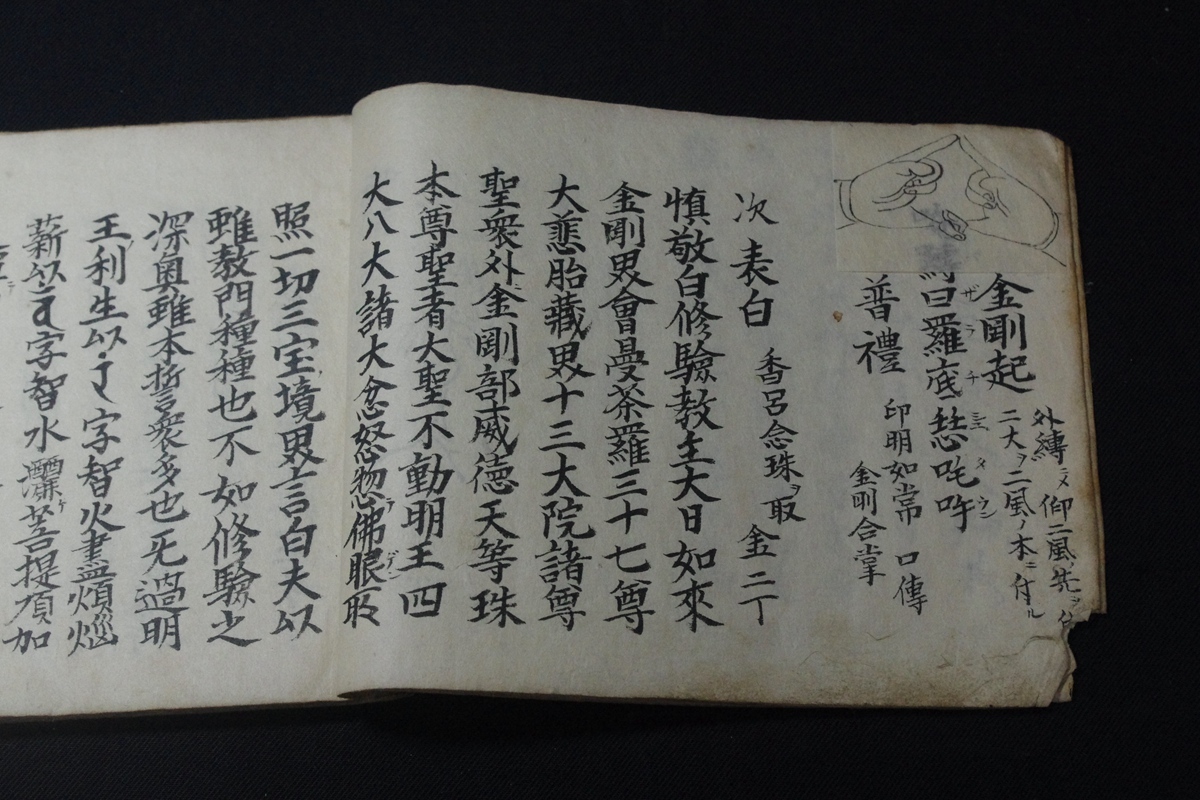 金剛起
外縛シメ仰二風ノ先ヲ
二大ヲ二風ノ本ニ付ル
曰羅底愸吒吽
ザラチシタウン
普禮
印明如常 口傳
金剛合掌
次表白 香呂念珠ヲ取 金二丁
慎敬白修驗教主大日如來
金剛界會曼荼羅三十七尊
大悲胎藏界十三大院諸尊
聖衆外金剛部威德天等殊
本尊聖者大聖不動明王四
大八大諸大忿怒惣佛眼所
照一切三宝境界言白夫以
雖教門種種也不如修驗之
深奥雖本誓衆多也无過明
王利生以字智火盡煩惱
薪以字智水灑菩提頂加